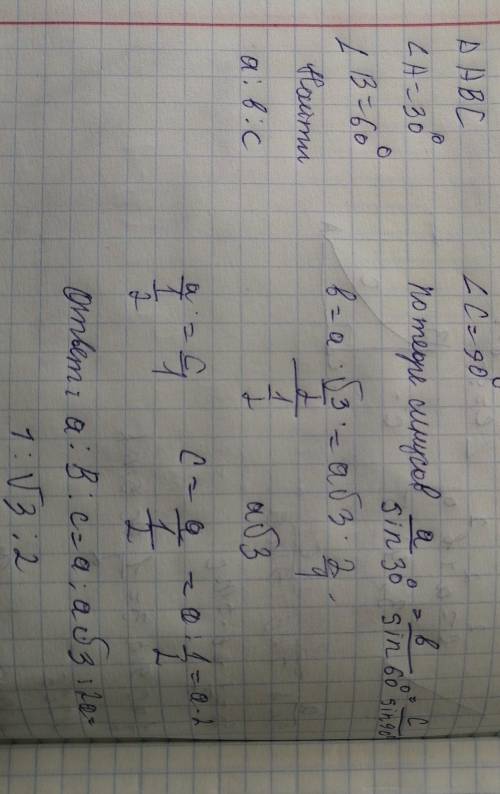 Δ ABC
∠A=30°
∠B=60°
Найти
a : в : c
∠C=90°
По теоре синусов a/sin30° = в/sin60° = c/sin90°
в = a · √3/2 / 1/2 = a√3 · 2/1 .
a√3
a / 1/2 = c/1   c = a / 1/2 = a : 1/2 = a·2
Ответ: a : в : c = a : a√3 : 2a =
1 : √3 : 2